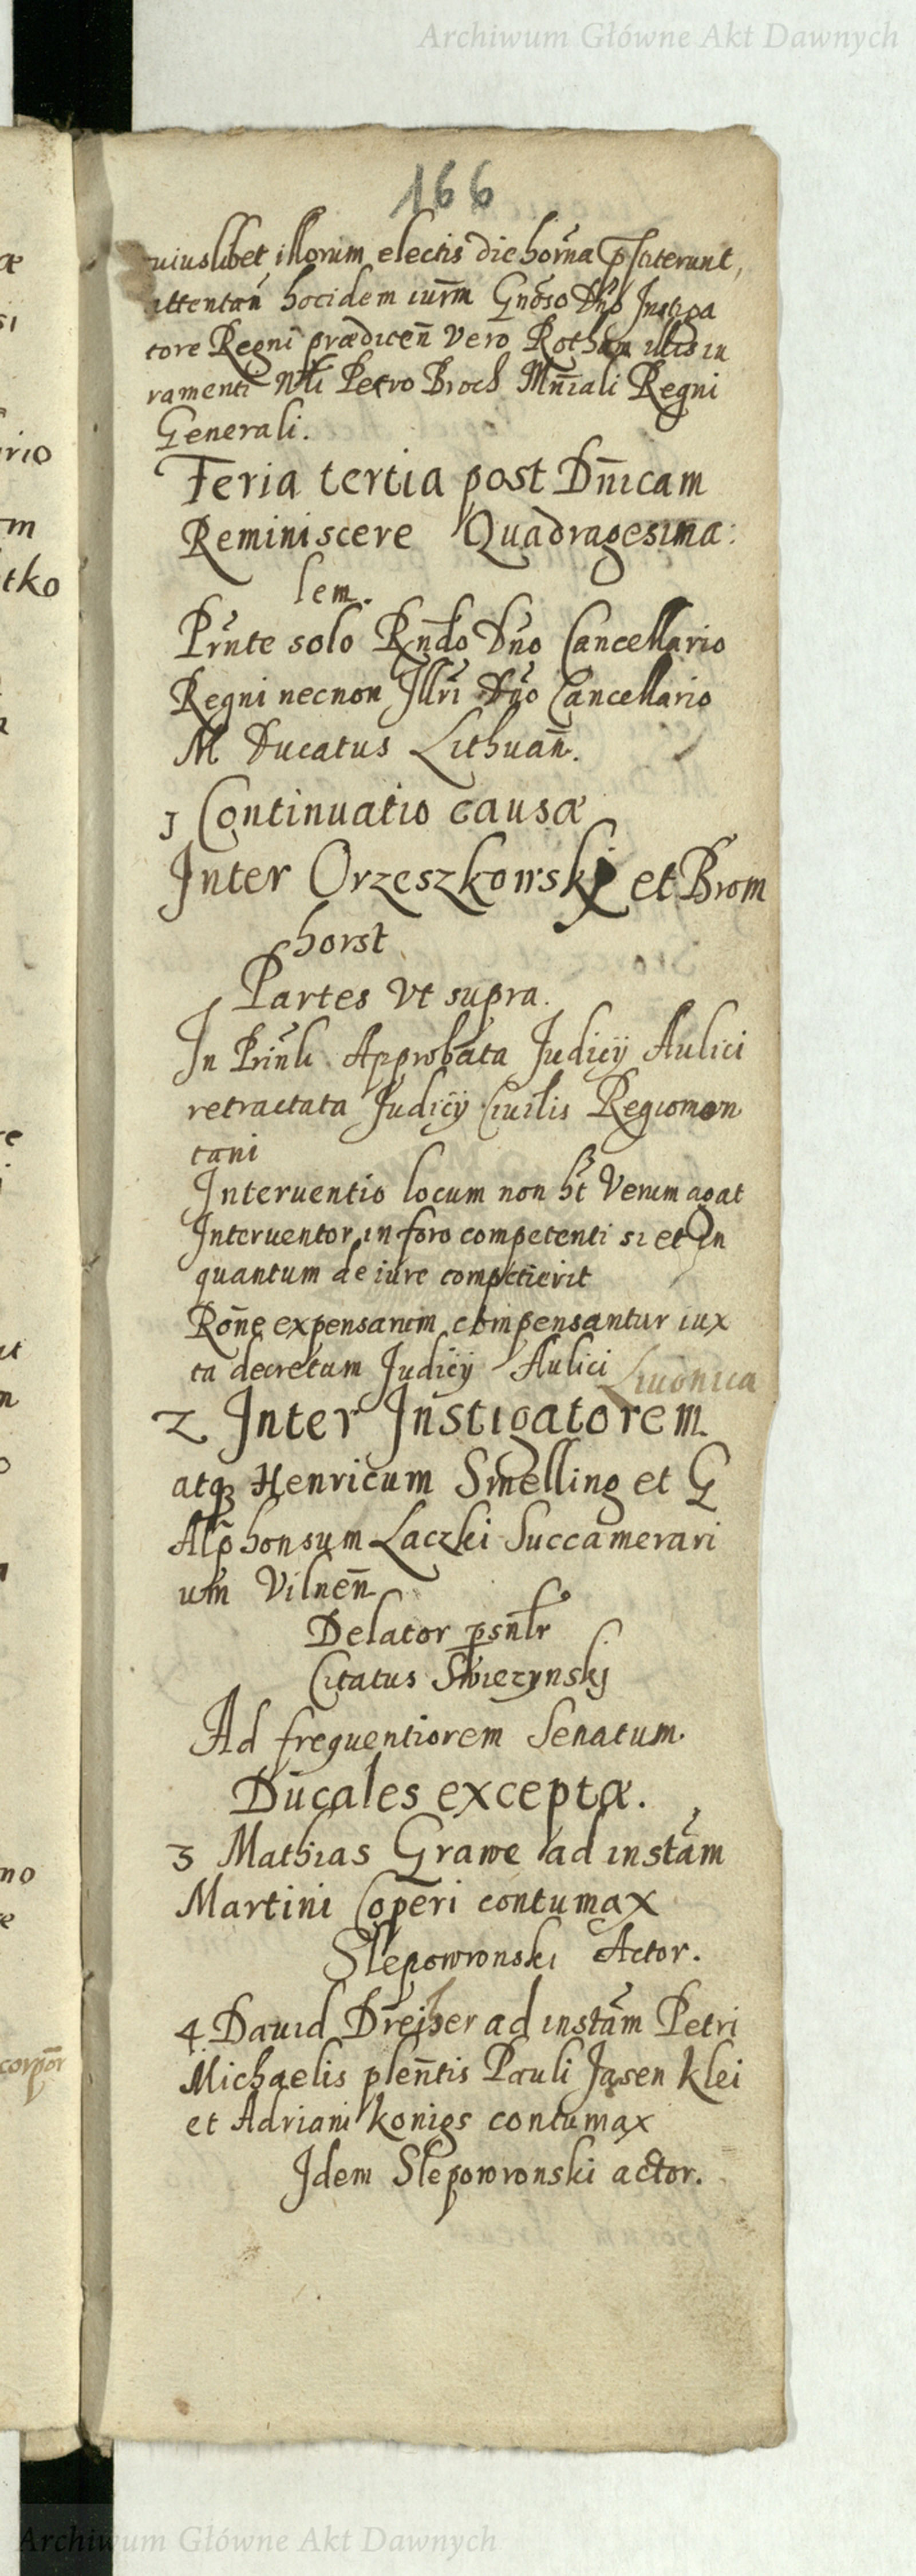 Archiwum Główne Akt Dawnych
166
uiuslibet illorum electis die horña
attentañ hocidem iur̃m Gñoso Dño Instiga
tore Regni prædiceñ vero Rotham illis iu
ramenti Nli Petro Broch Mñiali Regni
Generali.
Feria tertia post Dñicam
Reminiscere Quadragesima:
lem.
Prñte solo Rñdo Dño Cancellario
Regni necnon Illri Dño Cancellario
M Ducatus Lithuañ.
1 Continuatio causæ
Inter Orzeszkowski et Brom
horst
Partes vt supra.
In Prinli Approbata Iudicÿ Aulici
retractata Iudicÿ Ciuilis Regiomon
tani
Interuentio locum non ht Verum agat
Interuentor in foro competenti si et in
quantum de iure competierit
Rõne expensarum compensantur iux
ta decretum Iudicÿ Aulici
Liuonica
2 Inter Instigatorem
atq3 Henricum Smelling et G
Alphonsum Laczki Succamerari
um Vilneñ
Delator psñlr
Citatus Swiezynskj
Ad frequentiorem Senatum.
Ducales exceptæ.
3 Mathias Grawe ad instãm
Martini Coperi contumax
Slepowronski Actor.
4 Dauid Dreiher ad instãm Petri
Michaelis pleñtis Pauli Jasen klei
et Adriani konigs contumax
Idem Slepowronski actor.
æ
si
rio
m
tko
no
e
corpor
Archiwum Główne Akt Dawnych